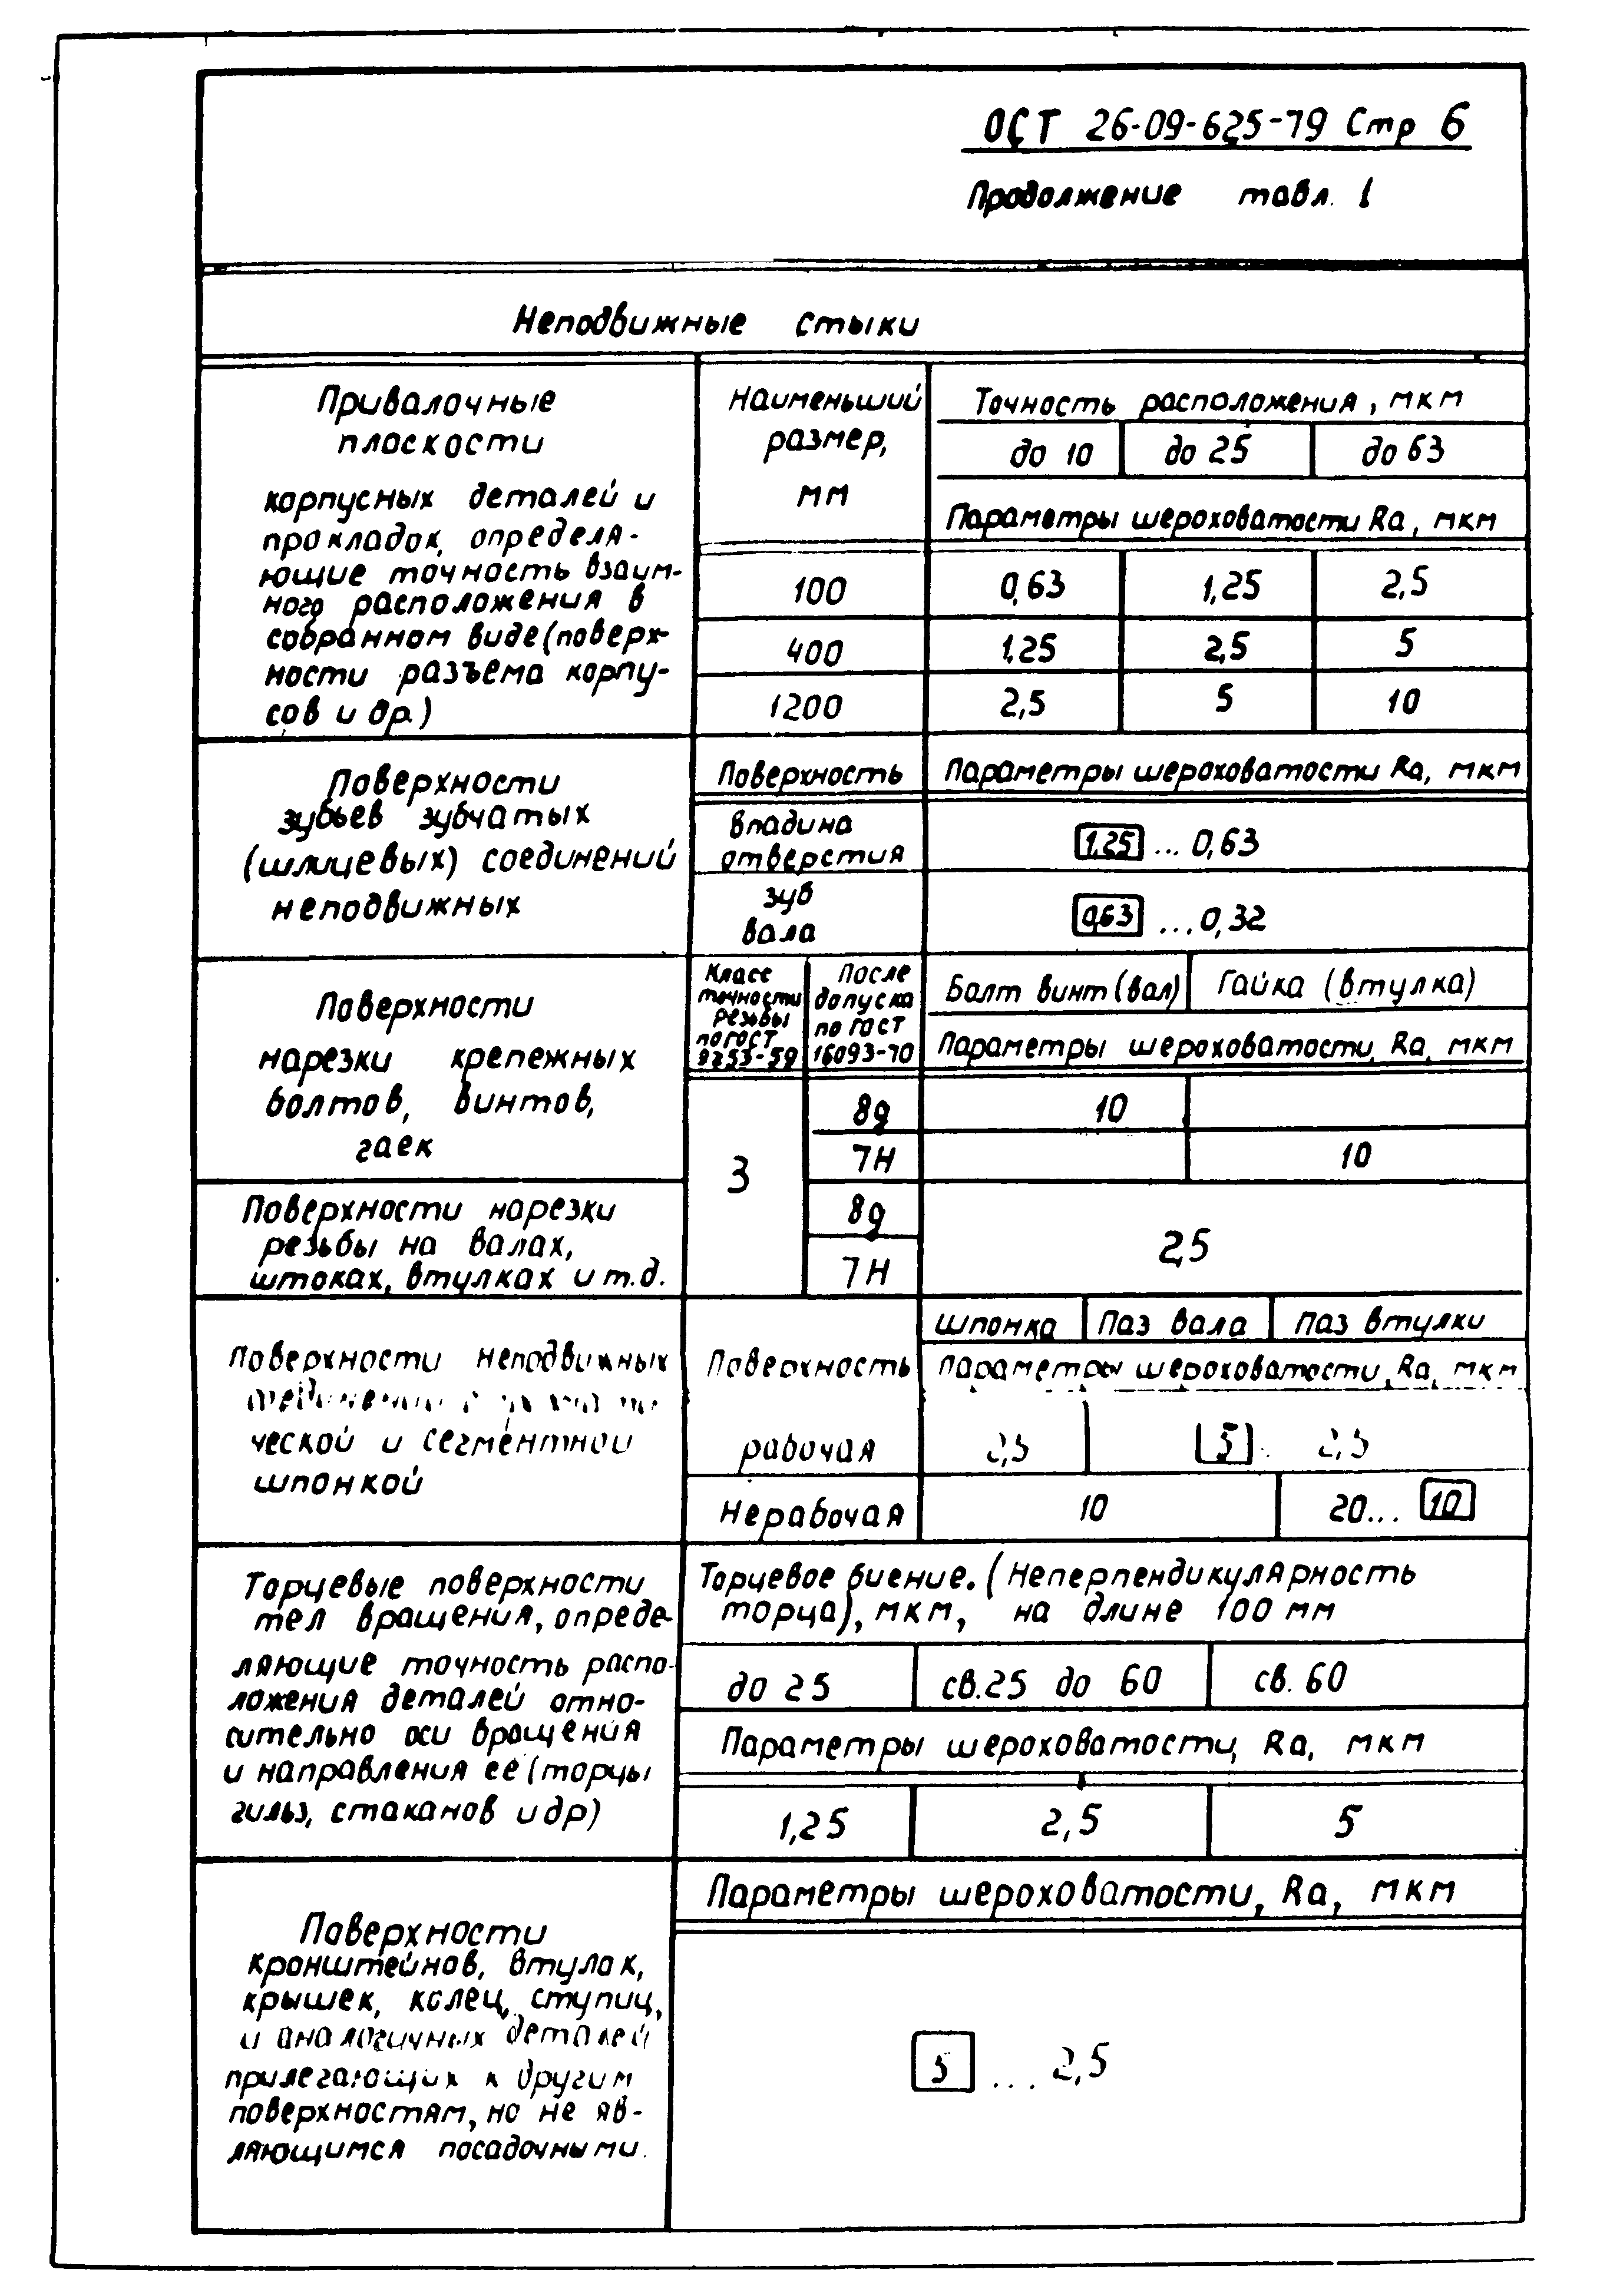 ОСТ 26-09-625-79 Стр 6
Продолжение табл. 1
Неподвижные стыки
Привалочные
плоскости
корпусных деталей и
прокладок, определя-
ющие точность взаим-
ного расположения в
собранном виде (поверх-
ности разъема корпу-
сов и др.)
Наименьший
размер,
мм
Точность расположения, мкм
до 10 до 25 до 63
Параметры шероховатости Ra, мкм
100 0,63 1,25 2,5
400 1,25 2,5 5
1200 2,5 5 10
Поверхности
зубьев зубчатых
(шлицевых) соединений
неподвижных
Поверхность Параметры шероховатости Ra, мкм
впадина
отверстия
1,25 ... 0,63
зуб
вала
0,63 ... 0,32
Поверхности
нарезки крепежных
болтов, винтов,
гаек
Класс
точности
резьбы
по ГОСТ
9253-59
После
допуска
по ГОСТ
16093-70
Болт винт (вал) Гайка (втулка)
Параметры шероховатости, Ra, мкм
3
8g 10
7Н 10
Поверхности нарезки
резьбы на валах,
штоках, втулках и т.д.
8g
7Н
2,5
Поверхности неподвижных
ческой и сегментной
шпонкой
Поверхность
шпонка паз вала паз втулки
Параметры шероховатости, Ra, мкм
рабочая 2,5 5 .. 2,5
Нерабочая 10 20... 10
Торцевые поверхности
тел вращения, опреде-
ляющие точность распо-
ложения деталей отно-
сительно оси вращения
и направления ее (торцы
гильз, стаканов и др)
Торцевое биение. (Неперпендикулярность
торца), мкм, на длине 100 мм
до 25 св.25 до 60 св. 60
Параметры шероховатости, Ra, мкм
1,25 2,5 5
Поверхности
кронштейнов, втулок,
крышек, колец, ступиц,
и аналогичных деталей
прилегающих к другим
поверхностям, но не яв-
ляющимся посадочными.
Параметры шероховатости, Ra, мкм
5 ... 2,5